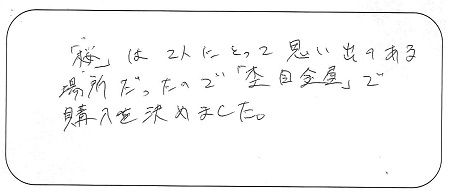 「桜」は2人にとって思い出のある
場所だったので「杢目金屋」で
購入を決めました。